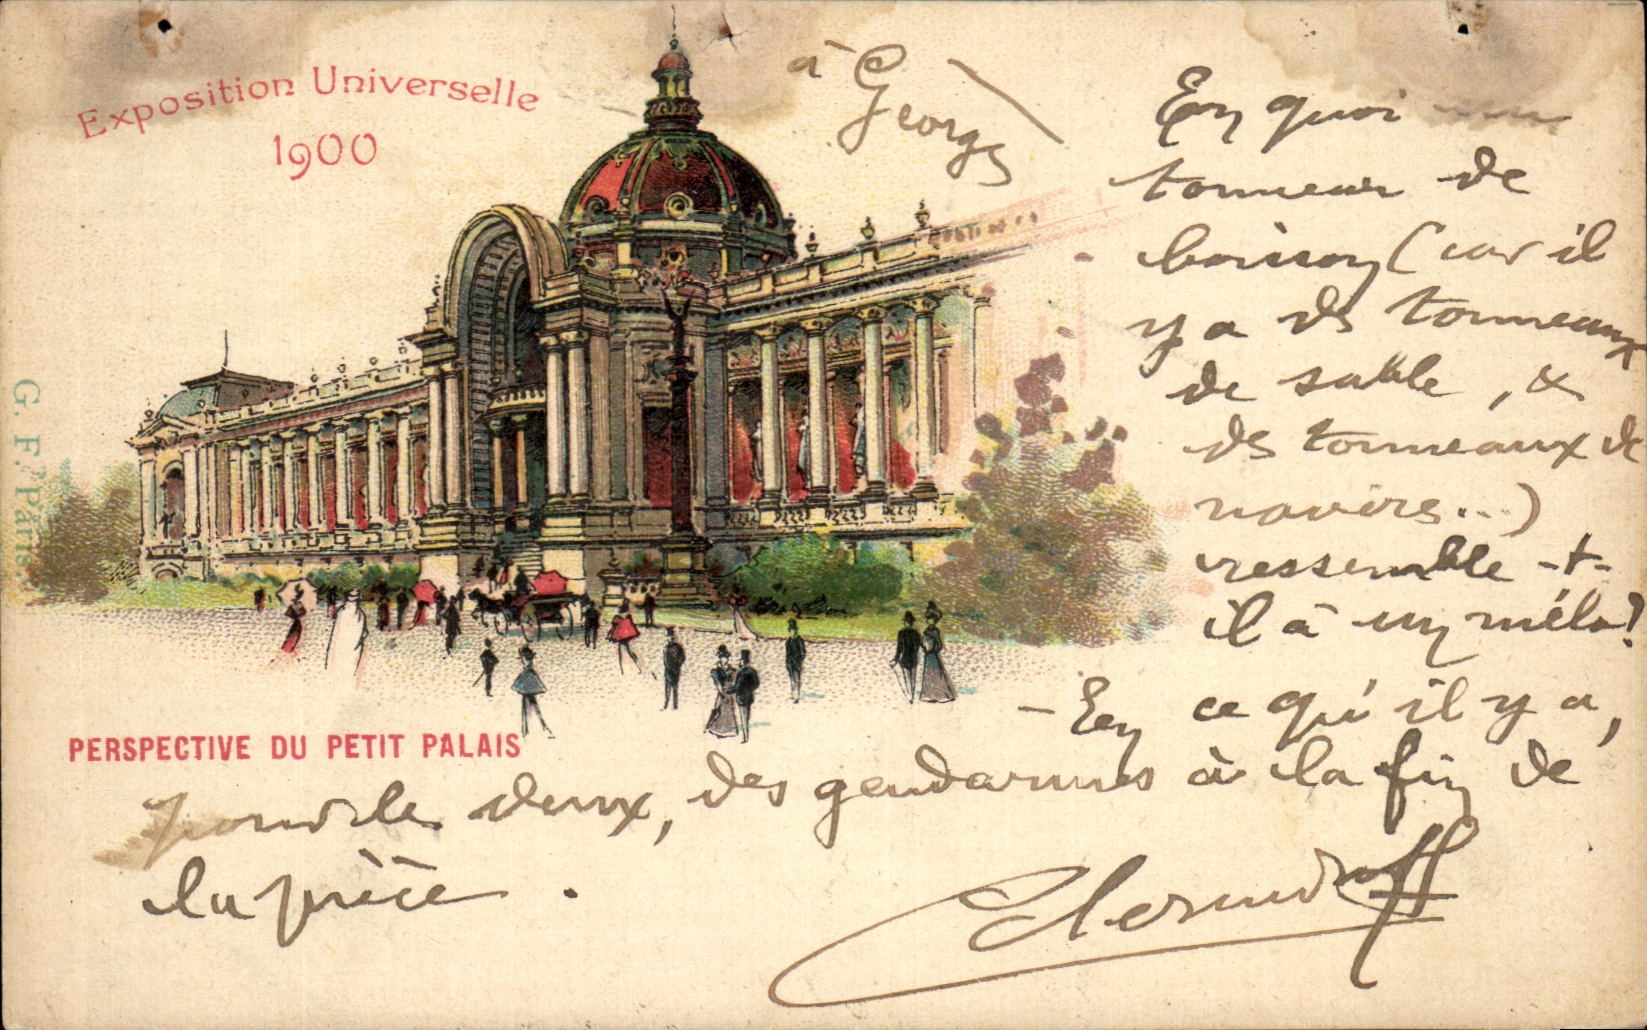 Exposition Universelle
1900
à Georges
En quoi un
tonneau de
boisson (car il
y a des tonneaux
de sable, &
des tonneaux de
navires...)
ressemble-t-
il à un mélo?
- En ce qu'il y a,
pour les deux, des gendarmes à la fin de
la pièce.
PERSPECTIVE DU PETIT PALAIS
G. F. Paris.